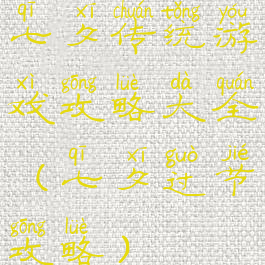 qī xī chuán tǒng yóu
七夕传统游
xì gōng lüè dà quán
戏攻略大全
qī xī guò jié
（七夕过节
gōng lüè
攻略）